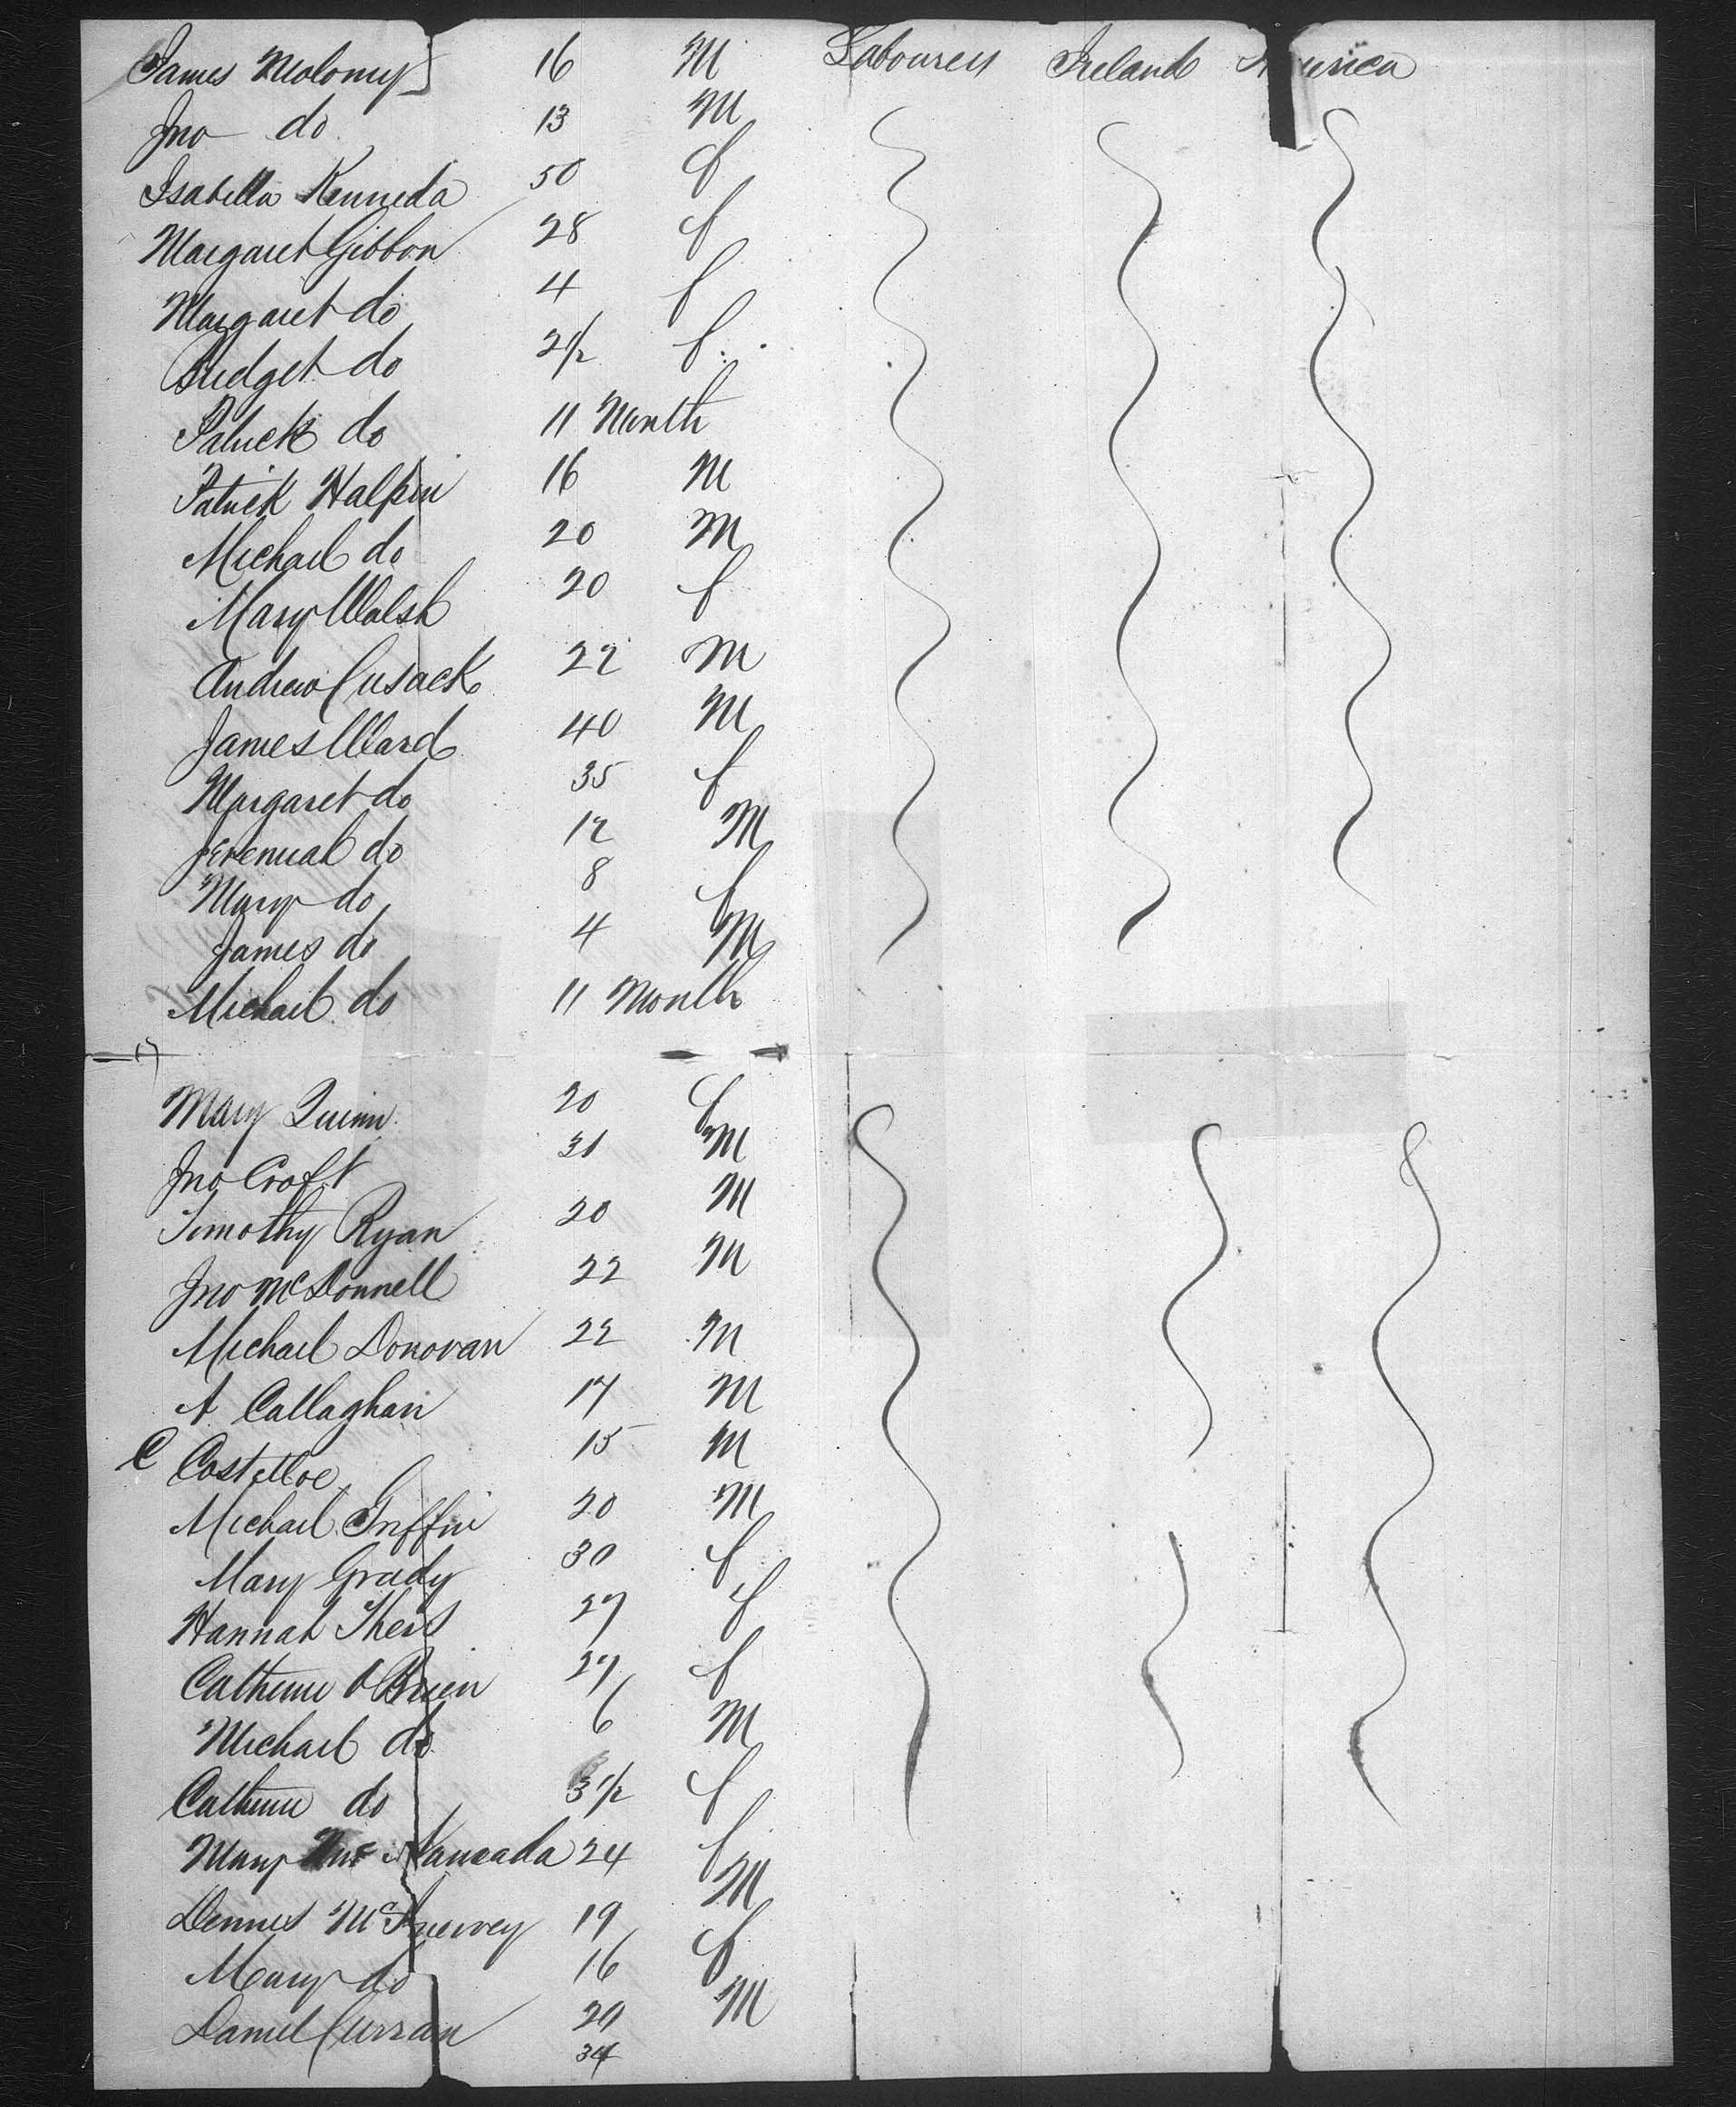 James Molomy 16 M Labourers Ireland America
Jno do 13 M
Isabella Kenneda 50 f
Margaret Gibbon 28 f
Margaret do 4 f
Bridget do 2 1/2 f
Patrick do 11 Month
Patrick Halpin 16 M
Michael do 20 M
Mary Walsh 20 f
Andrew Cusack 22 M
James Ward 40 M
Margaret do 35 f
Jeremiah do 12 M
Mary do 8 f
James do 4 M
Michael do 11 Month
Mary Quinn 20 f
Jno Croft 31 M
Timothy Ryan 20 M
Jno McDonnell 22 M
Michael Donovan 22 M
A Callaghan 17 M
C Costelloe 15 M
Michael Griffin 20 M
Mary Grady 30 f
Hannah 27 f
Catherine O Brien 27 f
Michael do 6 M
Catherine do 3 1/2 f
Mary 24 f
Dennis 19 M
Mary do 16 f
Daniel Curran 20 M
34